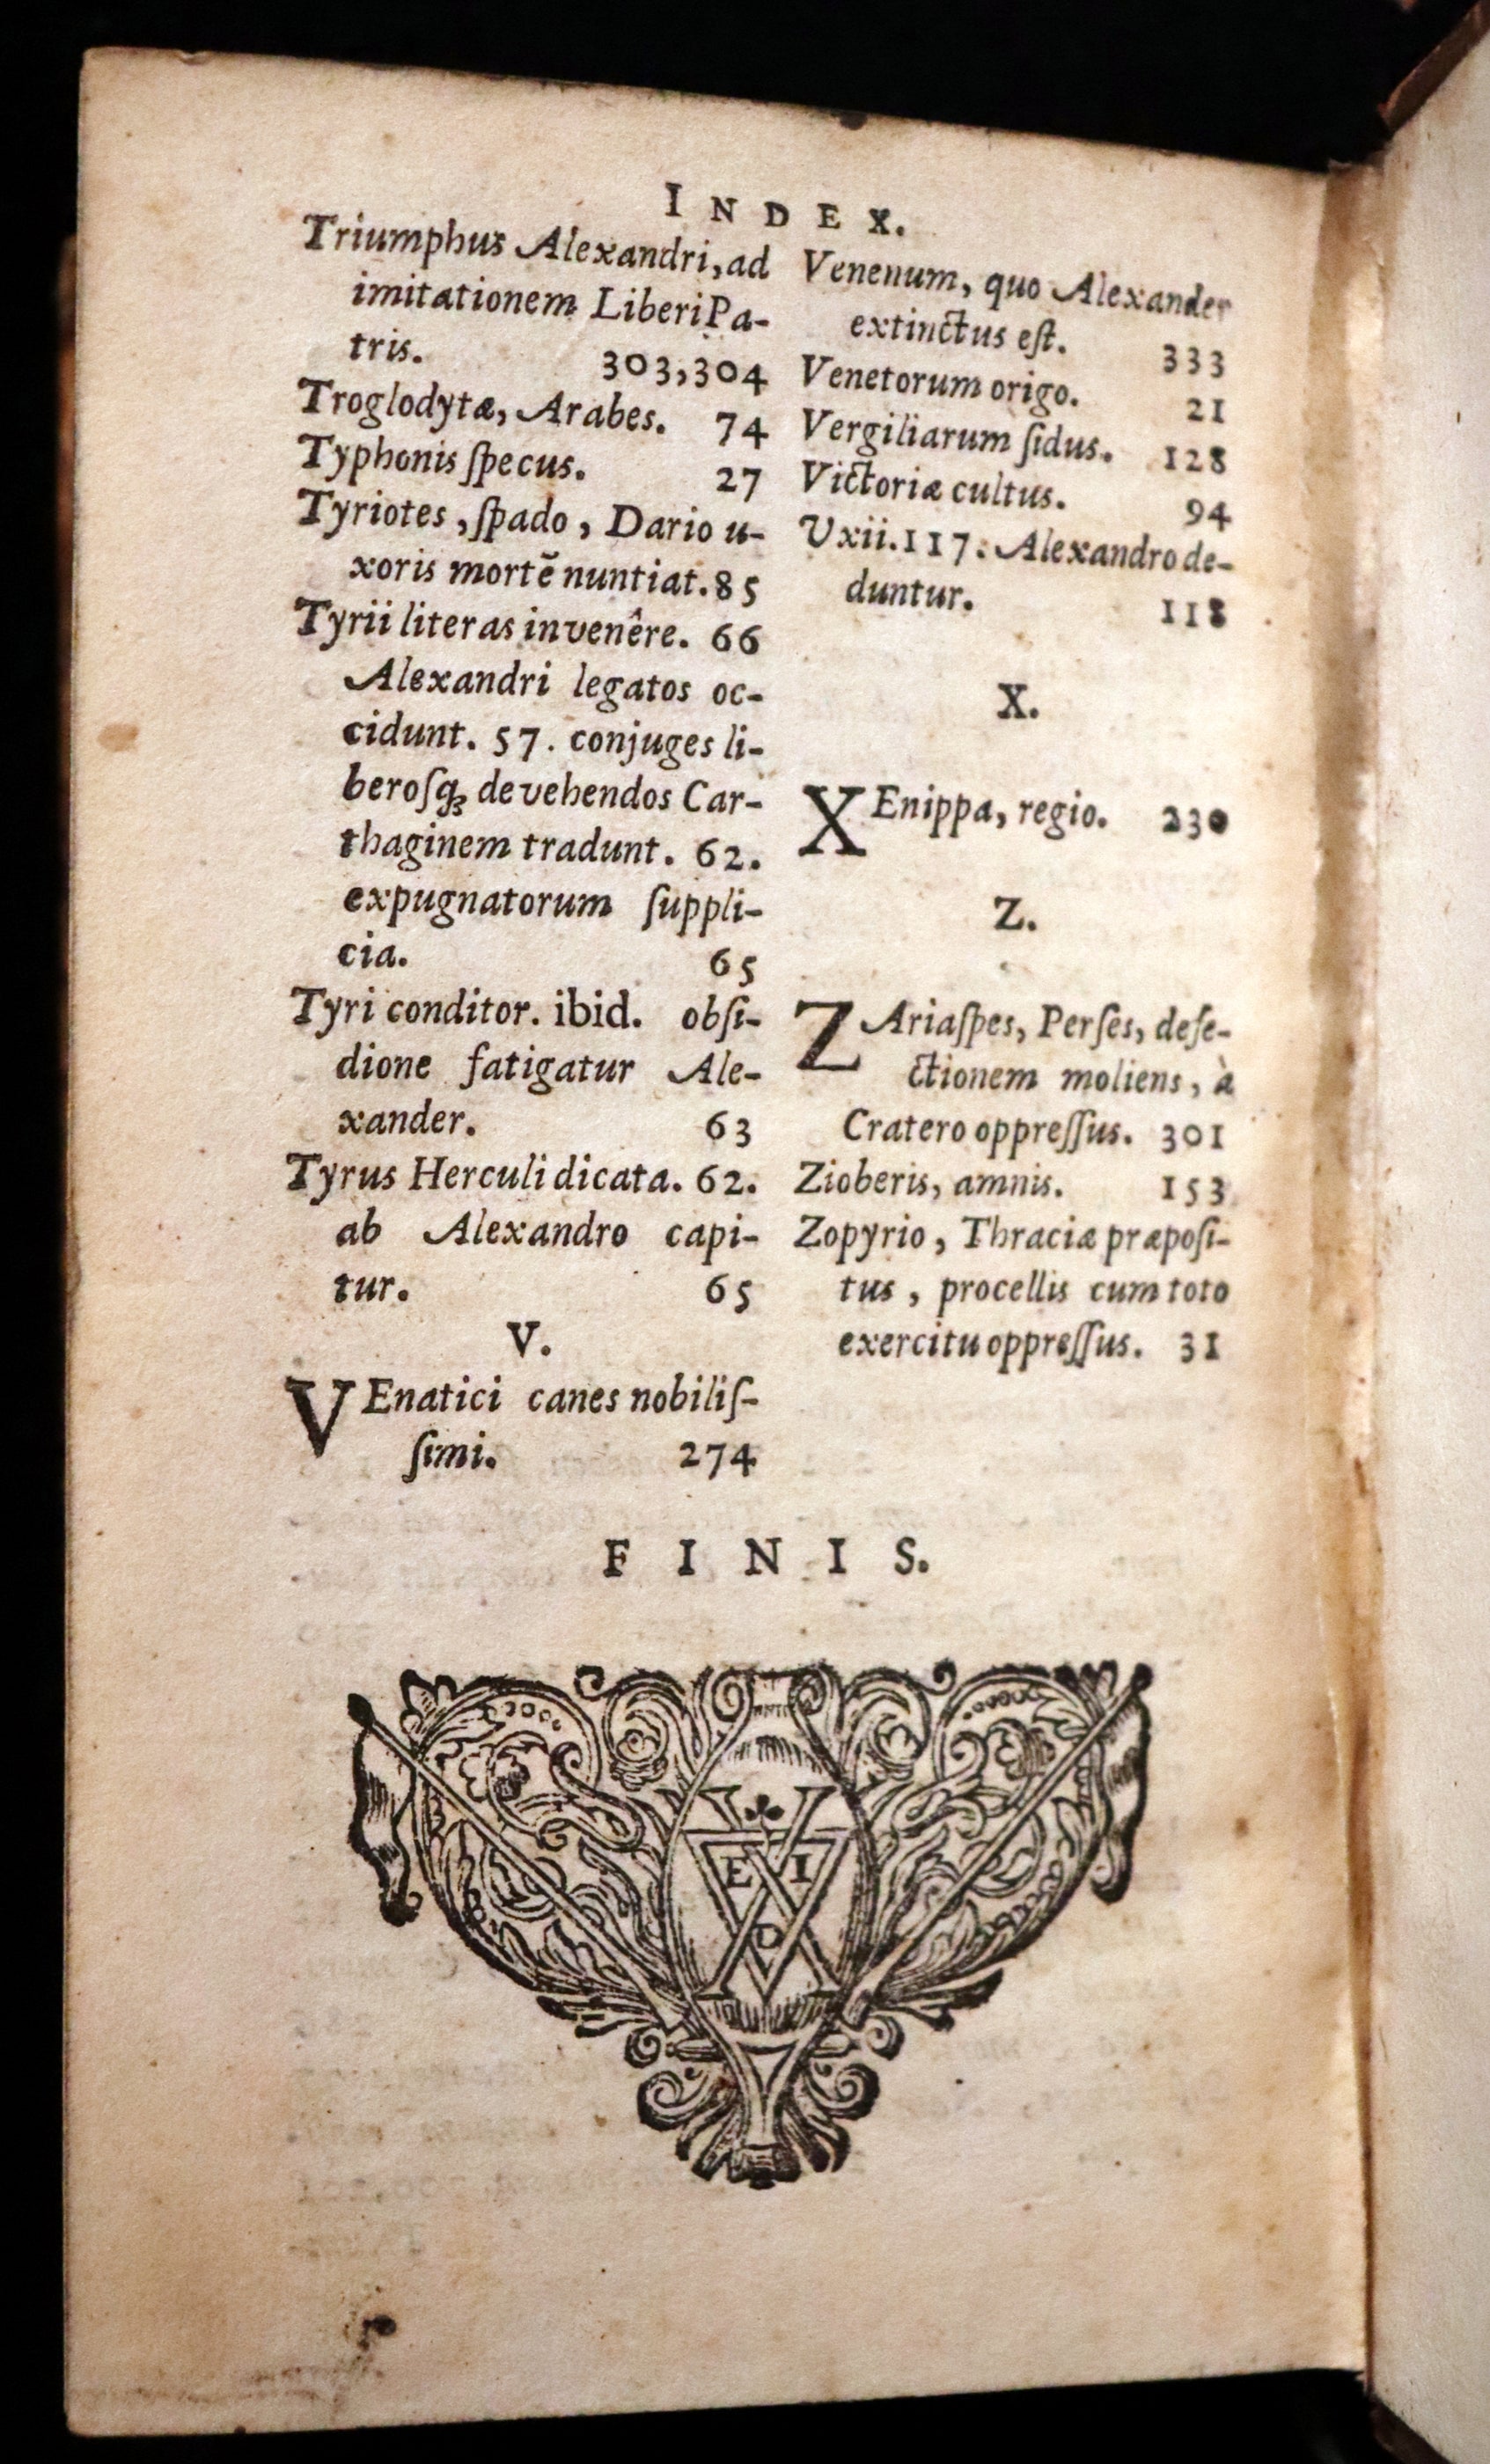 INDEX.
Triumphus Alexandri, ad
imitationem Liberi Pa-
tris. 303,304
Troglodytæ, Arabes. 74
Typhonis ſpecus. 27
Tyriotes, ſpado, Dario u-
xoris mortē nuntiat. 85
Tyrii literas invenêre. 66
Alexandri legatos oc-
cidunt. 57. conjuges li-
beroſq; devehendos Car-
thaginem tradunt. 62.
expugnatorum ſuppli-
cia. 65
Tyri conditor. ibid. obſi-
dione fatigatur Ale-
xander. 63
Tyrus Herculi dicata. 62.
ab Alexandro capi-
tur. 65
V.
VEnatici canes nobiliſ-
ſimi. 274
Venenum, quo Alexander
extinctus eſt. 333
Venetorum origo. 21
Vergiliarum ſidus. 128
Victoriæ cultus. 94
Uxii. 117. Alexandro de-
duntur. 118
X.
XEnippa, regio. 230
Z.
ZAriaſpes, Perſes, defe-
ctionem moliens, à
Cratero oppreſſus. 301
Zioberis, amnis. 153
Zopyrio, Thraciæ præpoſi-
tus, procellis cum toto
exercitu oppreſſus. 31
FINIS.
E I
D